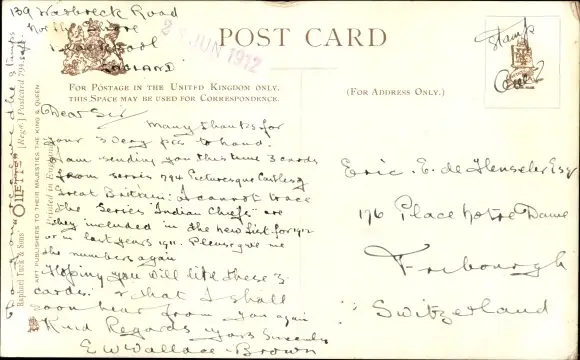 139 Westbreck Road
Liverpool
ENGLAND
23 JUN 1912
POST CARD
Stamp
Over
FOR POSTAGE IN THE UNITED KINGDOM ONLY.
THIS SPACE MAY BE USED FOR CORRESPONDENCE.
(FOR ADDRESS ONLY.)
Dear Sir/
Many thanks for
your 3 Very pcs to hand.
I am sending you this time 3 cards
from series 794 Picturesque Castles of
Great Britain: I cannot trace
the Series "Indian Chiefs" are
they included in the new List for 1912
or in last years 1911. Please give me
the numbers again
Hoping you will like these 3
cards. & that I shall
soon hear from you again
Kind Regards yours Sincerely
E W Wallace-Brown
Eric. E. de Henseler Esq
176 Place Notre Dame
Fribourgh
Switzerland
Raphael Tuck & Sons' "OILETTE" [Regd.] Postcard 794
ART PUBLISHERS TO THEIR MAJESTIES THE KING & QUEEN
Printed in England